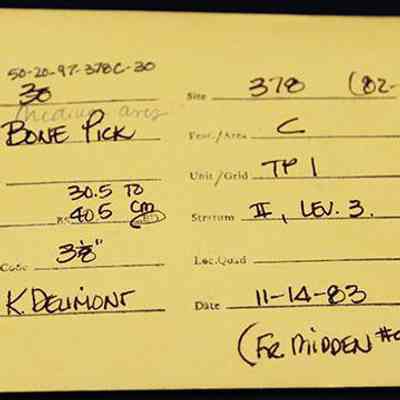 50-20-97-378C-30
30 Site 378 (82-
medium
BONE PICK Feat./Area C
Unit/Grid TP 1
30.5 TO
BS 40.5 cm Stratum II, LEV. 3.
Code 3⅛" Loc.Quad
K. DELIMONT Date 11-14-83
(FR MIDDEN #